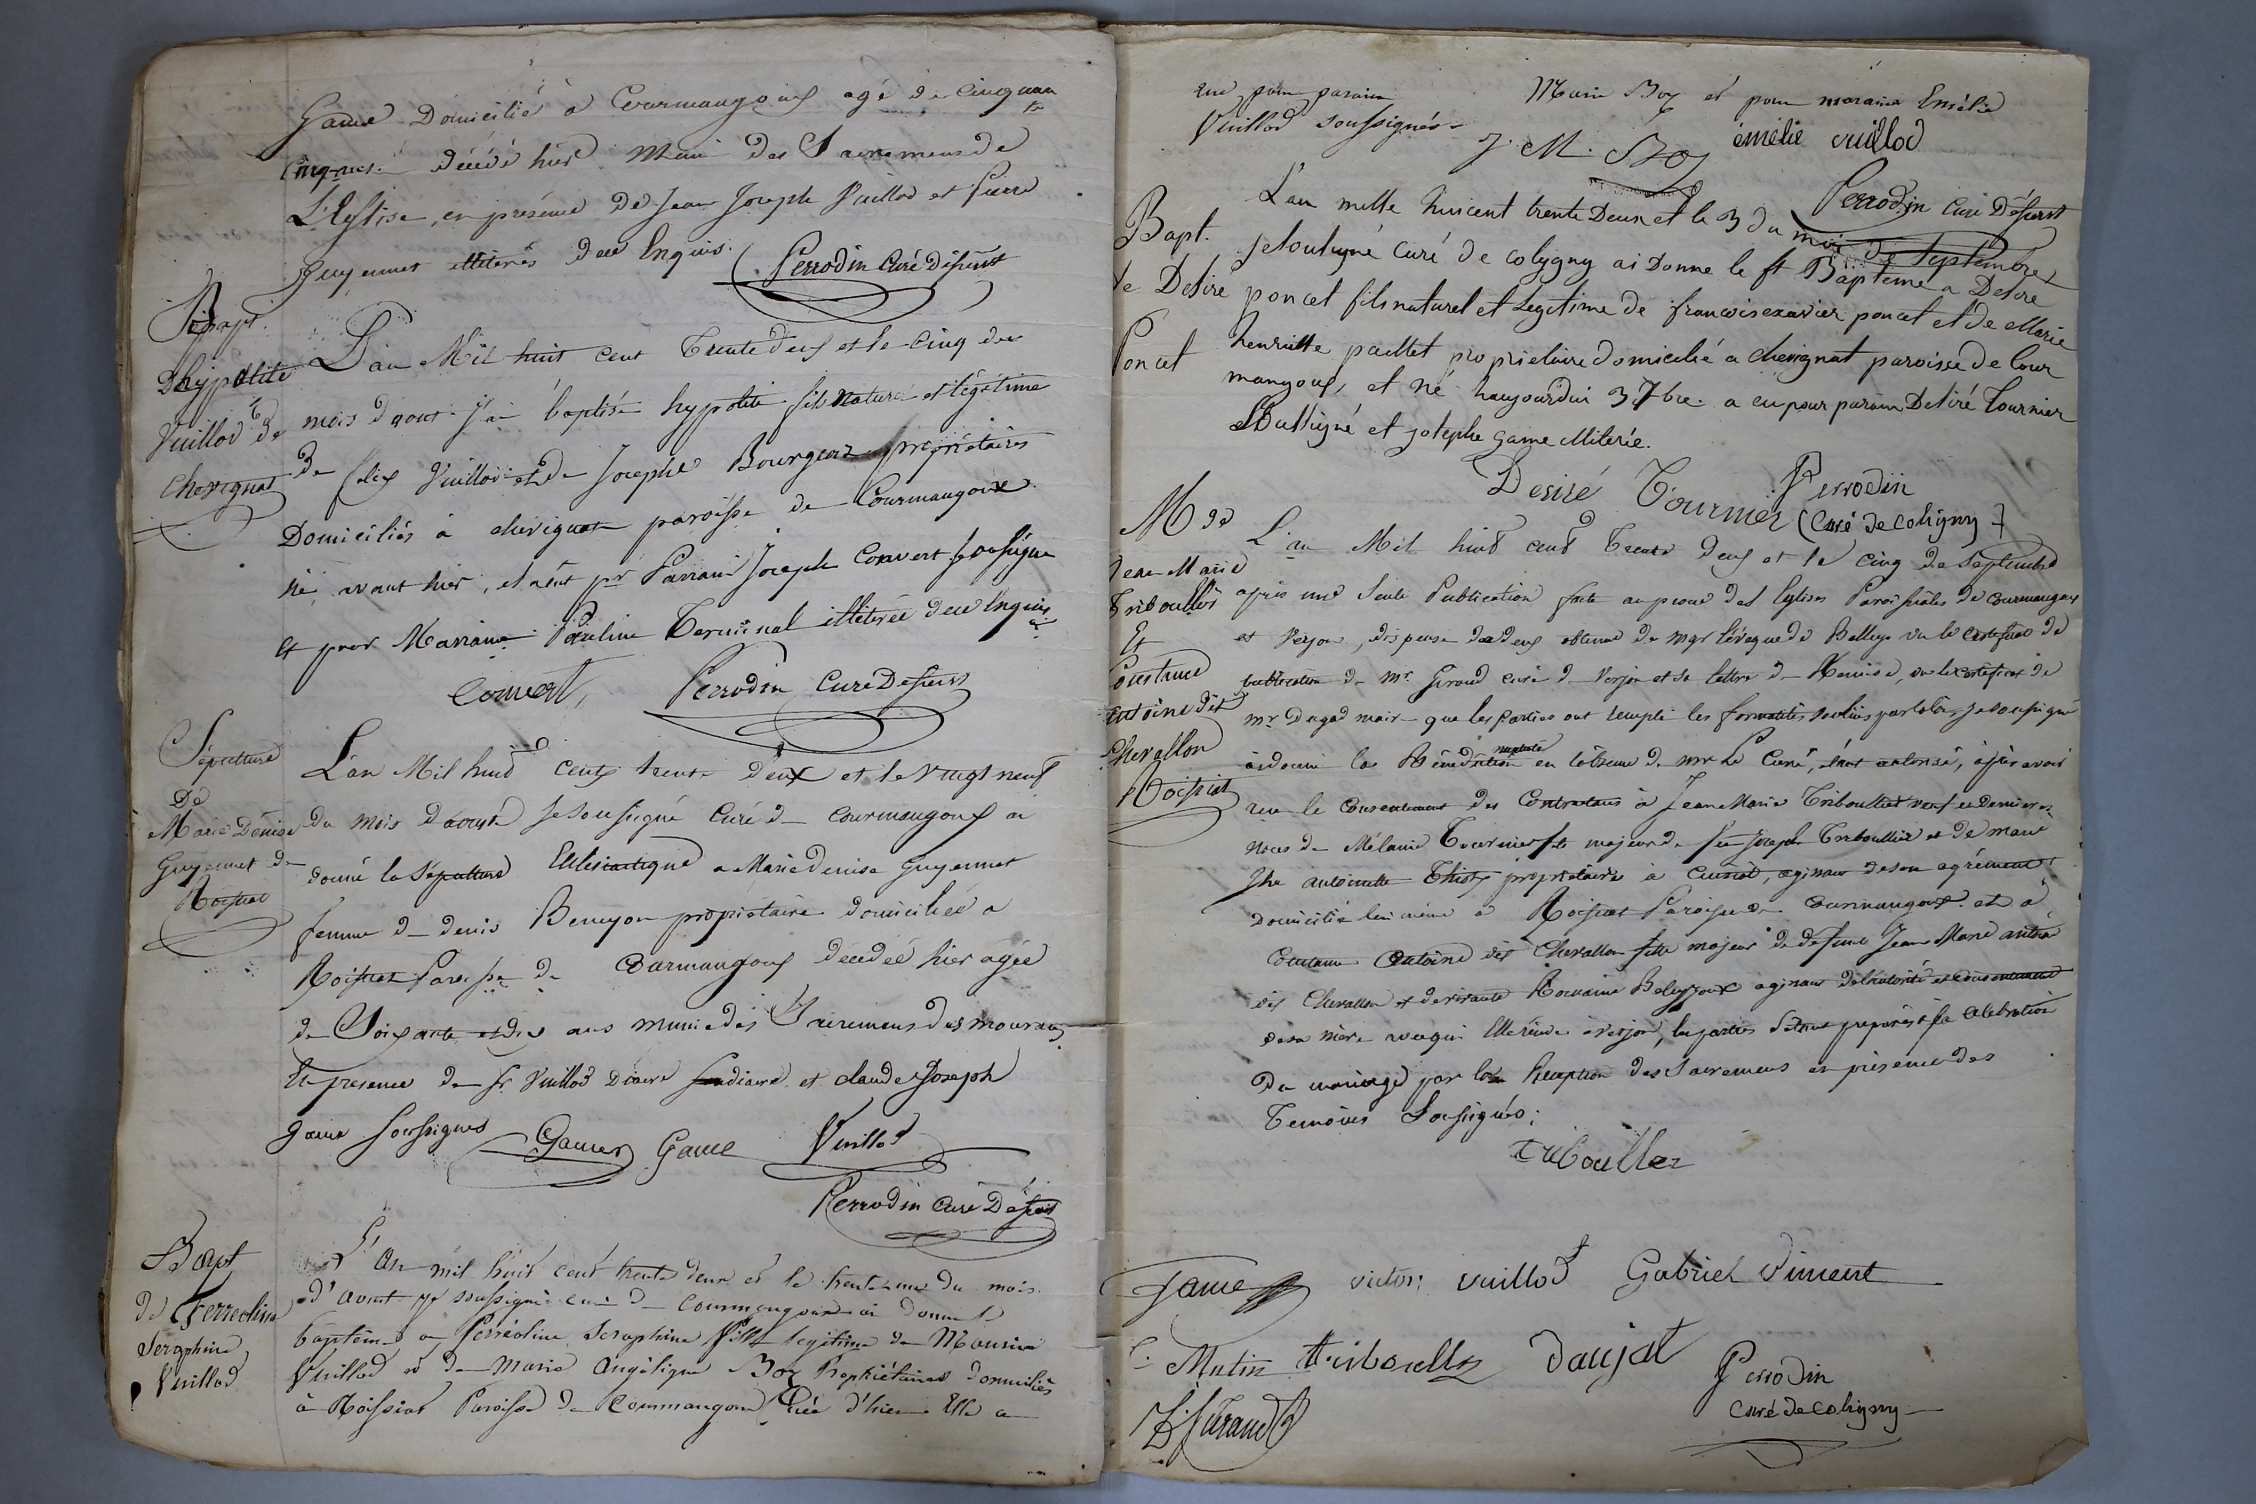 Game Domicilié à Courmangoux agé de cinquan
te
cinq ans. décédé hier Muni des Sacremens de
L'Eglise, en présence de Jean Joseph Vuillod et Pierre
Guyennet illitérés de ce Enquis. Perrodin curé Désservt
Bapt.
D'hypolite
Vuillod de
Chevignat
L'an Mil huit cent Trente deux et le cinq du
mois d'aout j'ai baptisé hypolite fils naturel et légitime
de Felix Vuillod et de Josephe Bourgeoz propriétaires
Domiciliés à chevignat paroisse de Courmangoux
né avant hier, et a eut pr Parrain Joseph Convert soussigné
et pour Marraine Pauline Terminal illitérée de ce Enquise
Convert, Perrodin curé Désservt
Sépulture
de
Marie Denise
Guyennet de
Roissiat
L'an Mil huit cents trente deux et le vingt neuf
du mois d'aoust je soussigné curé de courmangoux ai
donné la Sépulture Ecclésiastique a Marie Denise Guyennet
femme de denis Benuyon propriétaire domiciliée a
Roissiat Paroisse de Courmangoux décédée hier agée
de Soixante et dix ans munie des Sacremens des mourans
En presence de fr Vuillod Diacre et claude Joseph
Game soussignés Game Vuillod
Perrodin curé Désservt
Bapt
de Ferreoline
Seraphine
Vuillod
L'an mil huit cent trente deux et le trente un du mois
d'aout je soussigné curé de courmangoux ai donné le
baptême a ferréoline Seraphine fille legitime de Maurice
Vuillod et de Marie Angélique Boz Propriétaires domiciliés
à Roissiat Paroisse de Courmangoux Née d'hier Elle a
eue pour parain Marie Boz et pour maraine Emélie
Vuillod soussignés
J. M. Boz émélie vuillod
Perrodin curé Désservt
Bapt.
de Désiré
Poncet
L'an mille huicent trente Deux et le 3 du mois de Septembre
Je soussigné curé de coligny ai Donné le st Bâpteme a Desiré
poncet fils naturel et Legitime de francoisexavier poncet et de Marie
henriette paillet propriétaire domicilié a chevignat paroisse de Cour
mangoux, et né haujourdui 3 7bre. a eu pour parain Désiré Tournier
soussigné et josephe game illiterée.
Desiré Tournier Perrodin
(curé de coligny)
Mge
Jean Marie
Triboullet
Et
Constance
Antoine dit
Chevallon
Roissiat
L'an Mil huit cent Trente deux et le cinq de septembre
après une seule Publication faite au prone des Eglises Paroissiales de Courmangoux
et Verjon, dispense des deux obtenue de mgr l'évêque de Belley vu le certificat de
publication de Mr. Giroud curé de Verjon et sa lettre de Remise, vu le certificat de
mr Dagad maire que les parties ont rempli les formalités voulues par la loi, je soussigné
ai donné la Bénédiction nuptiale en l'absence de mr Le Curé, étant autorisé, après avoir
reçu le consentement des Contractans à Jean Marie Triboullet veuf en dernieres
noces de Mélanie Tournier fils majeur de feu Joseph Triboullet et de marie
Jhe antoinette Thisty propriétaire à Cuisiat, agissant de son agrément
domicilié lui même à Roissiat Paroisse de Courmangoux et à
Constance Antoine dit Chevallon fille majeure de defunt Jean Marie antoine
dit Chevallon et de vivante Romaine Beleyzoux agissant de l'autorité et consentement
de sa mère avec qui Elle réside à Verjon, les parties s'étant préparées à la célébration
du mariage par la Réception des Sacremens en présence des
Temoins Soussignés:
triboullez
Game victor vuillod Gabriel Piment
C. Mutin triboullez Daujat Perrodin
curé de coligny